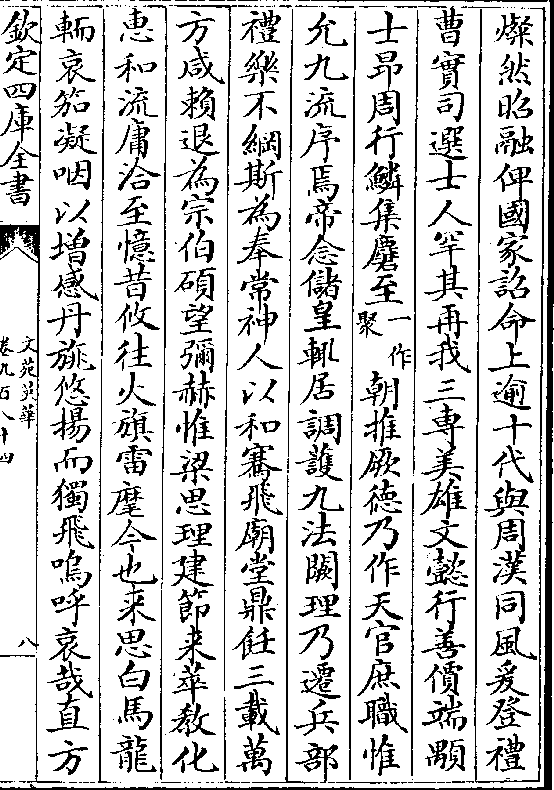 燦然昭融俾國家詔命上逾十代與周漢同風爰登禮
曹實司選士人罕其再我三專美雄文懿行善價端顒
士昂周行鱗集麏至一作聚朝推厥德乃作天官庶職惟
允九流序焉帝念儲皇輒居調護九法闕理乃遷兵部
禮樂不綱斯為奉常神人以和騫飛廟堂鼎飪三載萬
方咸賴退為宗伯碩望彌赫惟梁思理建節来莅敎化
惠和流庸洽至憶昔攸往火旗雷麾今也来思白馬龍
輀哀笳凝咽以增感丹旐悠揚而獨飛嗚呼哀哉直方
欽定四庫全書
文苑英華
卷九百八十四
八